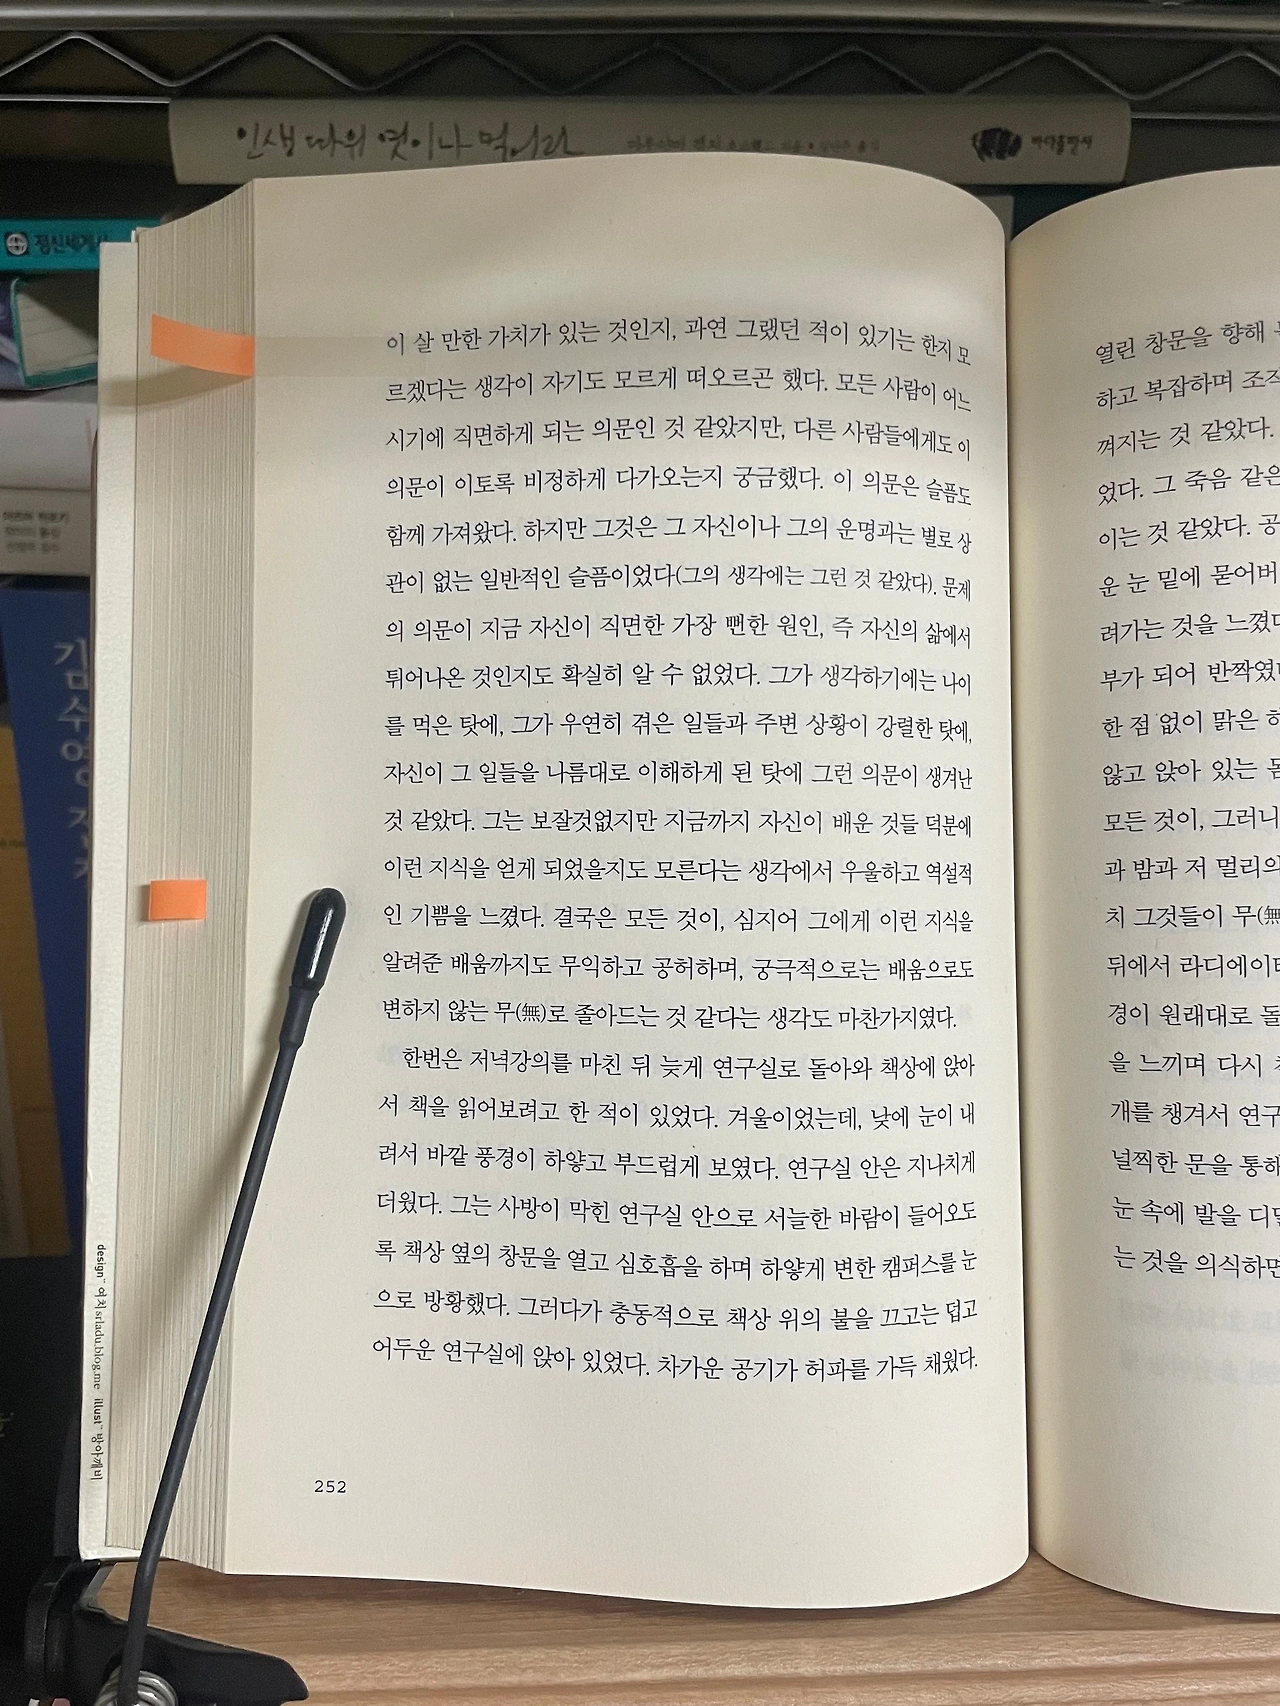 인생 따위 엿이나 먹어라
바다출판사
정신세계사
이 살 만한 가치가 있는 것인지, 과연 그랬던 적이 있기는 한지 모
르겠다는 생각이 자기도 모르게 떠오르곤 했다. 모든 사람이 어느
시기에 직면하게 되는 의문인 것 같았지만, 다른 사람들에게도 이
의문이 이토록 비정하게 다가오는지 궁금했다. 이 의문은 슬픔도
함께 가져왔다. 하지만 그것은 그 자신이나 그의 운명과는 별로 상
관이 없는 일반적인 슬픔이었다(그의 생각에는 그런 것 같았다). 문제
의 의문이 지금 자신이 직면한 가장 뻔한 원인, 즉 자신의 삶에서
튀어나온 것인지도 확실히 알 수 없었다. 그가 생각하기에는 나이
를 먹은 탓에, 그가 우연히 겪은 일들과 주변 상황이 강렬한 탓에,
자신이 그 일들을 나름대로 이해하게 된 탓에 그런 의문이 생겨난
것 같았다. 그는 보잘것없지만 지금까지 자신이 배운 것들 덕분에
이런 지식을 얻게 되었을지도 모른다는 생각에서 우울하고 역설적
인 기쁨을 느꼈다. 결국은 모든 것이, 심지어 그에게 이런 지식을
알려준 배움까지도 무익하고 공허하며, 궁극적으로는 배움으로도
변하지 않는 무(無)로 졸아드는 것 같다는 생각도 마찬가지였다.
한번은 저녁강의를 마친 뒤 늦게 연구실로 돌아와 책상에 앉아
서 책을 읽어보려고 한 적이 있었다. 겨울이었는데, 낮에 눈이 내
려서 바깥 풍경이 하얗고 부드럽게 보였다. 연구실 안은 지나치게
더웠다. 그는 사방이 막힌 연구실 안으로 서늘한 바람이 들어오도
록 책상 옆의 창문을 열고 심호흡을 하며 하얗게 변한 캠퍼스를 눈
으로 방황했다. 그러다가 충동적으로 책상 위의 불을 끄고는 덥고
어두운 연구실에 앉아 있었다. 차가운 공기가 허파를 가득 채웠다.
252
열린 창문을 향해
하고 복잡하며 조직
껴지는 것 같았다.
었다. 그 죽음 같은
이는 것 같았다. 공
운 눈 밑에 묻어버
려가는 것을 느꼈다
부가 되어 반짝였
한 점 없이 맑은 하
않고 앉아 있는 몸
모든 것이, 그러니
과 밤과 저 멀리의
치 그것들이 무(無
뒤에서 라디에이터
경이 원래대로 돌
을 느끼며 다시
개를 챙겨서 연구
널찍한 문을 통해
눈 속에 발을 디딜
는 것을 의식하면
design 여치srladu.blog.me illust 방아깨비
김수영 전집